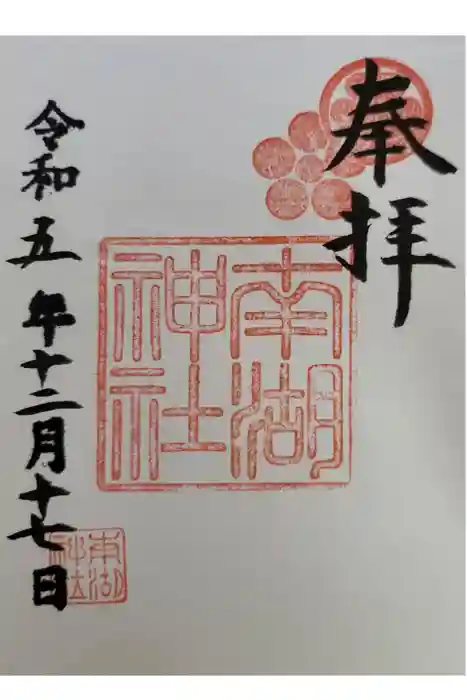 奉拝
南湖
神社
令和五年十二月十七日
南湖
神社